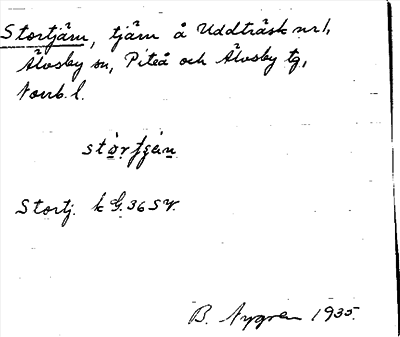 Stortjärn, tjärn å Uddträsk nr 1,
Älvsby sn, Piteå och Älvsby tg,
Norrb. l.
Stortj. k G. 36 SV.
B. Nygren 1935.